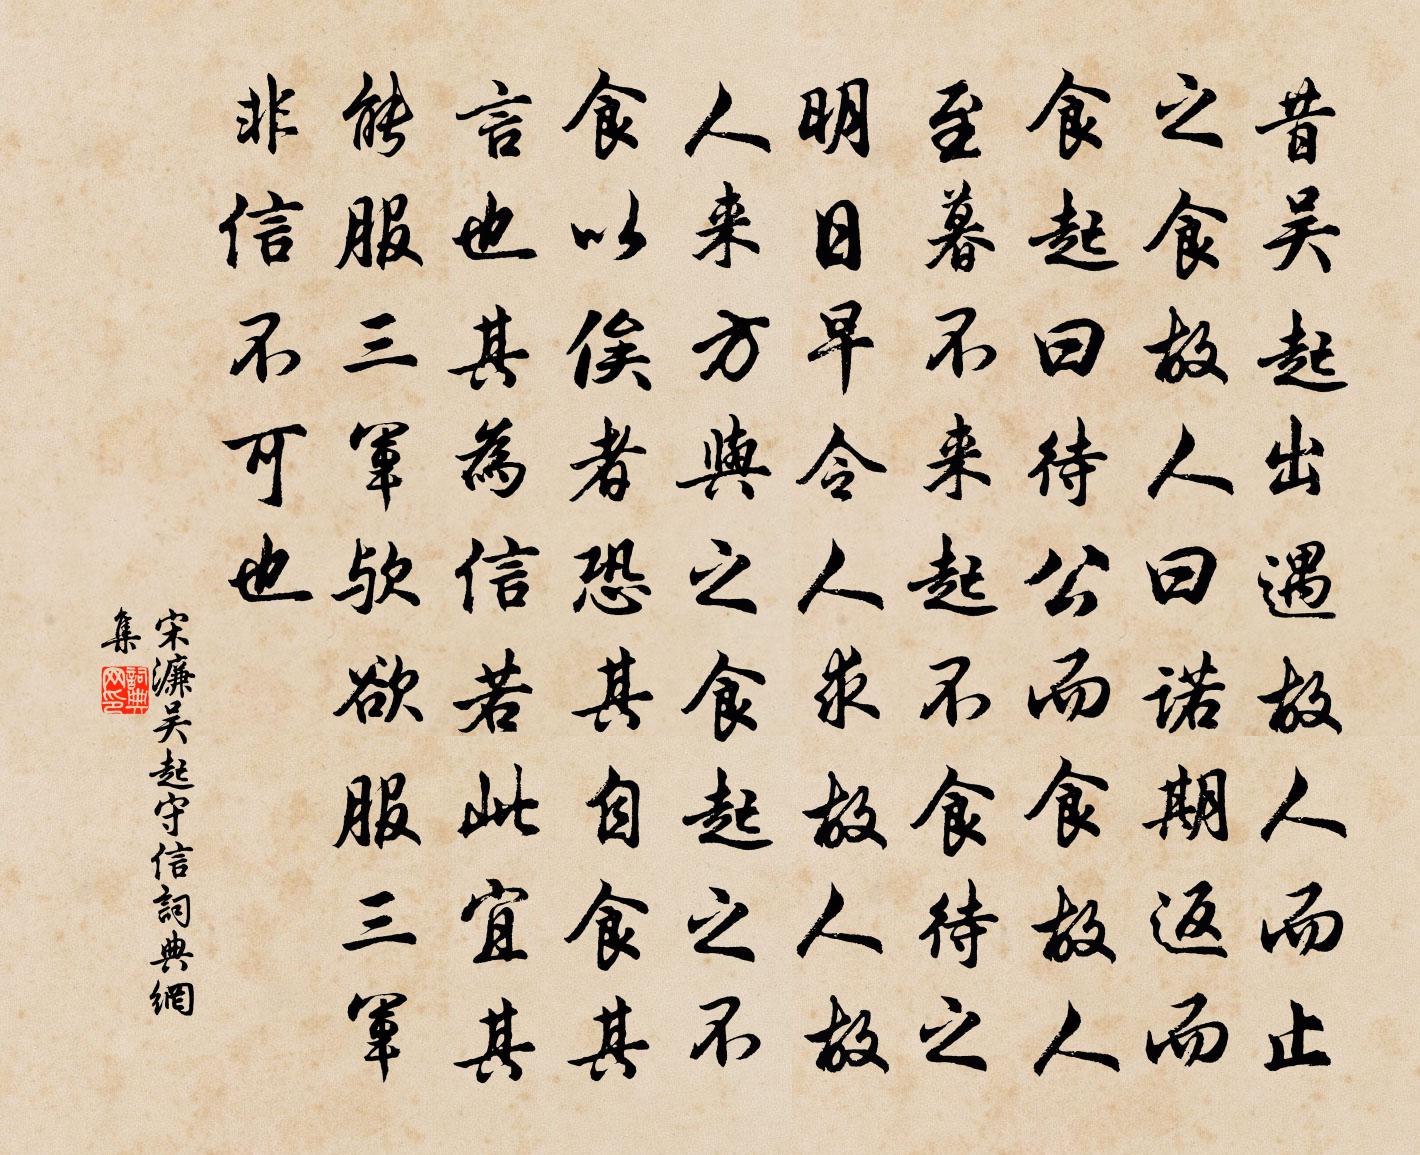 昔吴起出遇故人而止
之食故人曰诺期返而
食起曰待公而食故人
至暮不来起不食待之
明日早令人求故人故
人来方與之食起之不
食以俟者恐其自食其
言也其為信若此宜其
能服三軍欤欲服三軍
非信不可也
宋濂吴起守信詞典網
集
詞典
网印